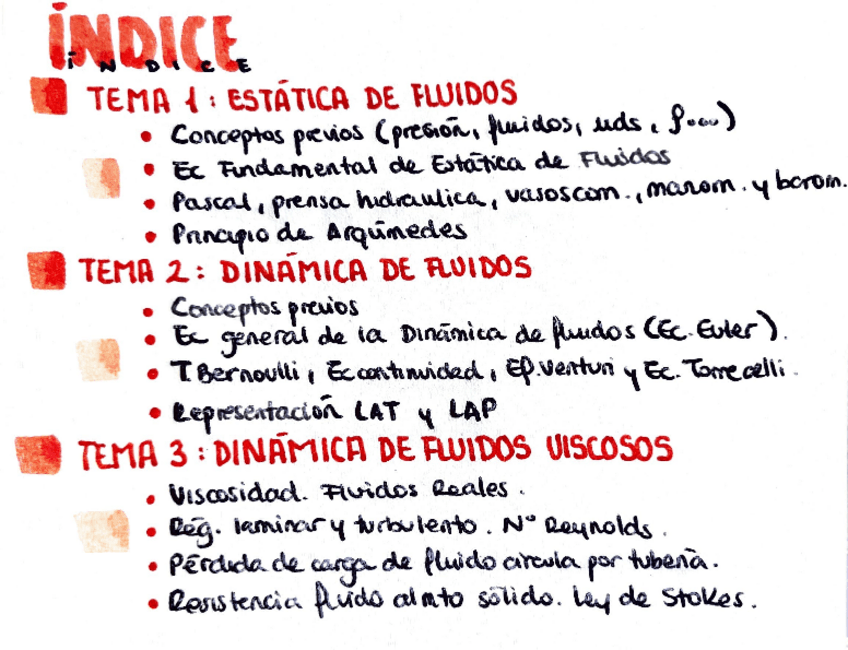 ÍNDICE
ÍNDICE
TEMA 1: ESTÁTICA DE FLUIDOS
• Conceptos previos (presión, fluidos, uds, ρ....)
• Ec Fundamental de Estática de Fluidos
• Pascal, prensa hidraulica, vasoscom., manom. y barom.
• Principio de Arquímedes
TEMA 2: DINÁMICA DE FLUIDOS
• Conceptos previos
• Ec general de la Dinámica de fluidos (Ec. Euler).
• T. Bernoulli, Ec continuidad, Ef. Venturi y Ec. Torrecelli.
• Representación LAT y LAP
TEMA 3: DINÁMICA DE FLUIDOS VISCOSOS
• Viscosidad. Fluidos Reales.
• Reg. laminar y turbulento. Nº Reynolds.
• Pérdida de carga de fluido circula por tubería.
• Resistencia fluido al mto sólido. Ley de Stokes.